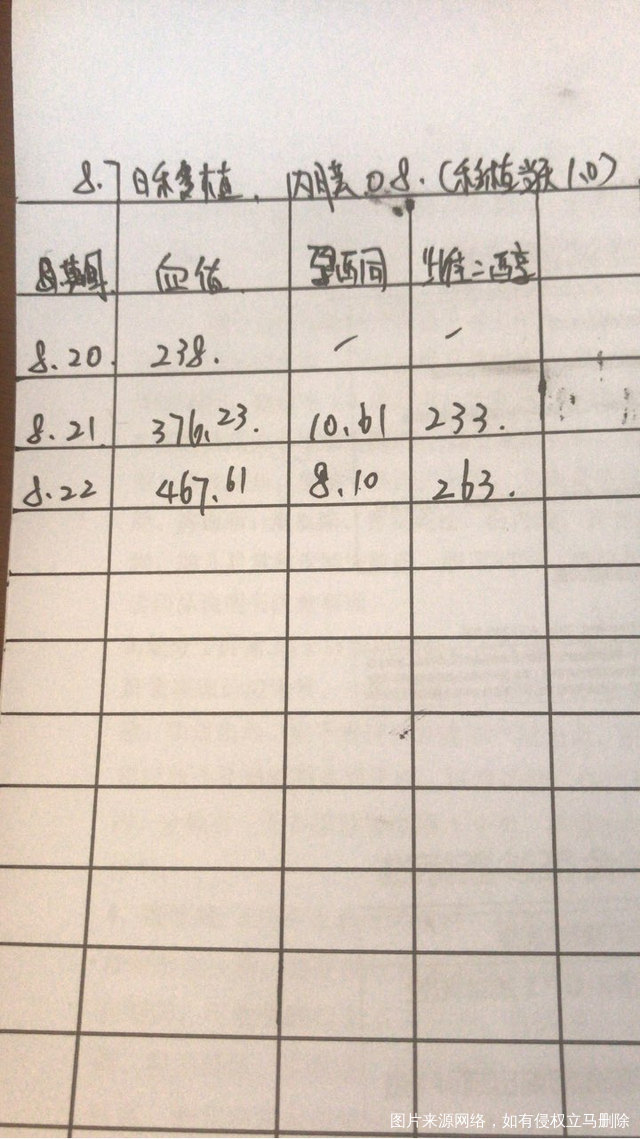 8.7日移植. 内膜 0.8. (移植当天 1.0)
日期 血值 孕酮 雌二醇
8.20. 238. - -
8.21 376.23. 10.61 233.
8.22 467.61 8.10 263.
图片来源网络，如有侵权立马删除